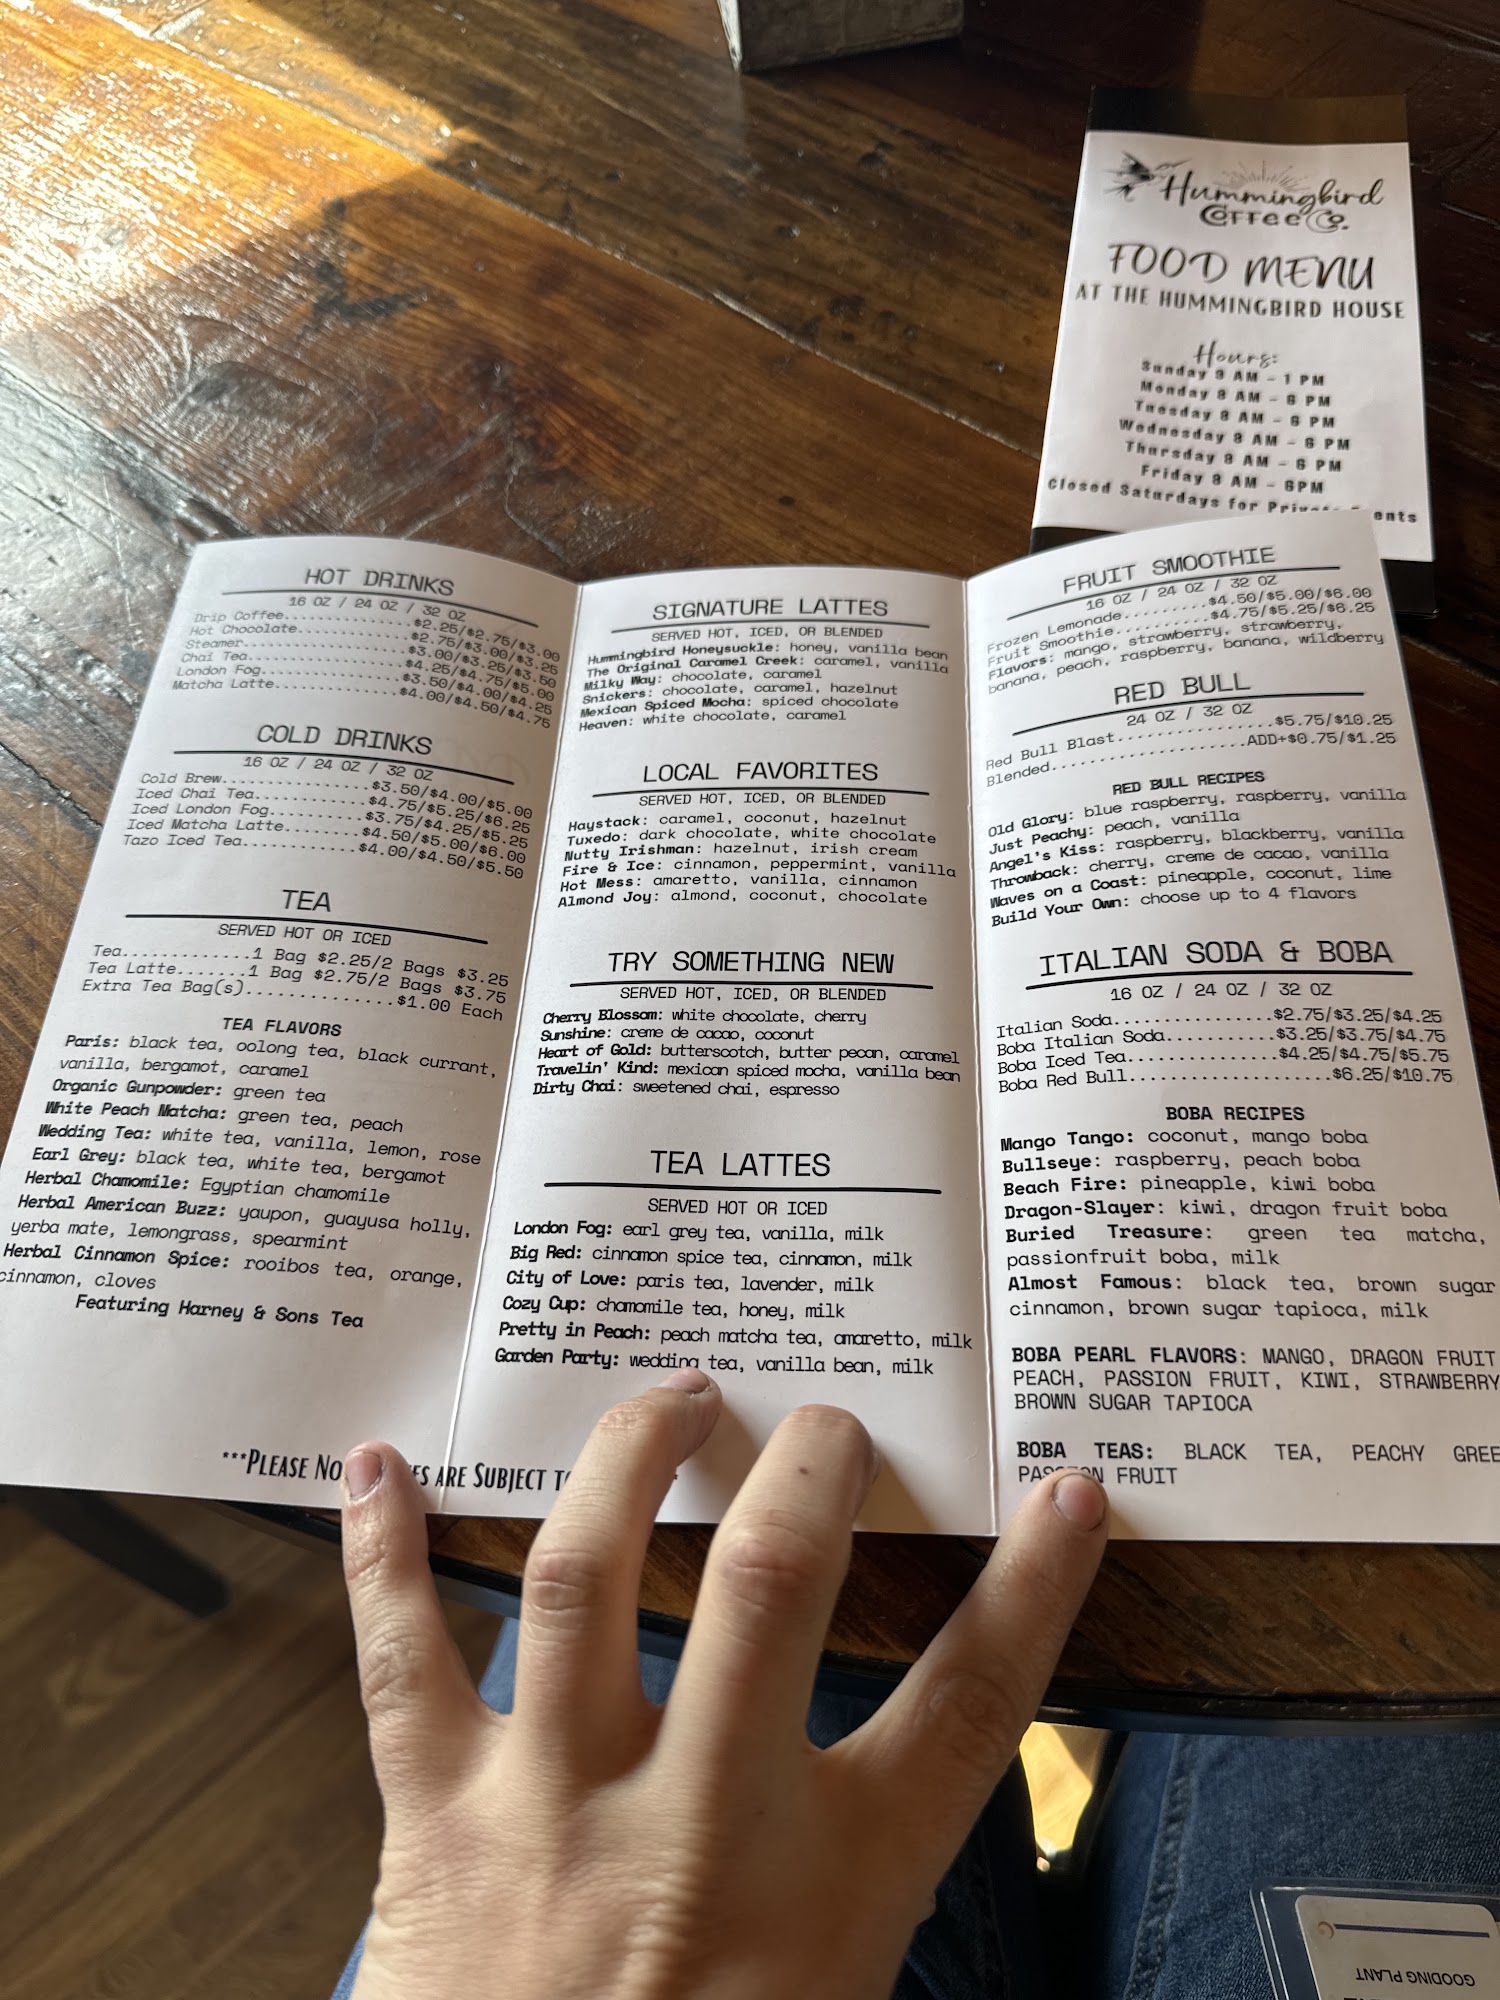 Hummingbird
Coffee Co.
FOOD MENU
AT THE HUMMINGBIRD HOUSE
Hours:
Sunday 9 AM - 1 PM
Monday 8 AM - 6 PM
Tuesday 8 AM - 6 PM
Wednesday 8 AM - 6 PM
Thursday 8 AM - 6 PM
Friday 8 AM - 6PM
Closed Saturdays for
HOT DRINKS
16 OZ / 24 OZ / 32 OZ
Drip Coffee..............$2.25/$2.75/$3.00
Hot Chocolate............$2.75/$3.00/$3.25
Steamer..................$3.00/$3.25/$3.50
Chai Tea.................$4.25/$4.75/$5.00
London Fog...............$3.50/$4.00/$4.25
Matcha Latte.............$4.00/$4.50/$4.75
COLD DRINKS
16 OZ / 24 OZ / 32 OZ
Cold Brew................$3.50/$4.00/$5.00
Iced Chai Tea............$4.75/$5.25/$6.25
Iced London Fog..........$3.75/$4.25/$5.25
Iced Matcha Latte........$4.50/$5.00/$6.00
Tazo Iced Tea............$4.00/$4.50/$5.50
TEA
SERVED HOT OR ICED
Tea.............1 Bag $2.25/2 Bags $3.25
Tea Latte.......1 Bag $2.75/2 Bags $3.75
Extra Tea Bag(s)...............$1.00 Each
TEA FLAVORS
Paris: black tea, oolong tea, black currant,
vanilla, bergamot, caramel
Organic Gunpowder: green tea
White Peach Matcha: green tea, peach
Wedding Tea: white tea, vanilla, lemon, rose
Earl Grey: black tea, white tea, bergamot
Herbal Chamomile: Egyptian chamomile
Herbal American Buzz: yaupon, guayusa holly,
yerba mate, lemongrass, spearmint
Herbal Cinnamon Spice: rooibos tea, orange,
cinnamon, cloves
Featuring Harney & Sons Tea
SIGNATURE LATTES
SERVED HOT, ICED, OR BLENDED
Hummingbird Honeysuckle: honey, vanilla bean
The Original Caramel Creek: caramel, vanilla
Milky Way: chocolate, caramel
Snickers: chocolate, caramel, hazelnut
Mexican Spiced Mocha: spiced chocolate
Heaven: white chocolate, caramel
LOCAL FAVORITES
SERVED HOT, ICED, OR BLENDED
Haystack: caramel, coconut, hazelnut
Tuxedo: dark chocolate, white chocolate
Nutty Irishman: hazelnut, irish cream
Fire & Ice: cinnamon, peppermint, vanilla
Hot Mess: amaretto, vanilla, cinnamon
Almond Joy: almond, coconut, chocolate
TRY SOMETHING NEW
SERVED HOT, ICED, OR BLENDED
Cherry Blossom: white chocolate, cherry
Sunshine: creme de cacao, coconut
Heart of Gold: butterscotch, butter pecan, caramel
Travelin' Kind: mexican spiced mocha, vanilla bean
Dirty Chai: sweetened chai, espresso
TEA LATTES
SERVED HOT OR ICED
London Fog: earl grey tea, vanilla, milk
Big Red: cinnamon spice tea, cinnamon, milk
City of Love: paris tea, lavender, milk
Cozy Cup: chamomile tea, honey, milk
Pretty in Peach: peach matcha tea, amaretto, milk
Garden Party: wedding tea, vanilla bean, milk
***PLEASE ARE SUBJECT
FRUIT SMOOTHIE
16 OZ / 24 OZ / 32 OZ
Frozen Lemonade.........$4.50/$5.00/$6.00
Fruit Smoothie..........$4.75/$5.25/$6.25
Flavors: mango, strawberry, strawberry,
banana, peach, raspberry, banana, wildberry
RED BULL
24 OZ / 32 OZ
Red Bull Blast...............$5.75/$10.25
Blended..................ADD+$0.75/$1.25
RED BULL RECIPES
Old Glory: blue raspberry, raspberry, vanilla
Just Peachy: peach, vanilla
Angel's Kiss: raspberry, blackberry, vanilla
Throwback: cherry, creme de cacao, vanilla
Waves on a Coast: pineapple, coconut, lime
Build Your Own: choose up to 4 flavors
ITALIAN SODA & BOBA
16 OZ / 24 OZ / 32 OZ
Italian Soda..............$2.75/$3.25/$4.25
Boba Italian Soda..........$3.25/$3.75/$4.75
Boba Iced Tea.............$4.25/$4.75/$5.75
Boba Red Bull..................$6.25/$10.75
BOBA RECIPES
Mango Tango: coconut, mango boba
Bullseye: raspberry, peach boba
Beach Fire: pineapple, kiwi boba
Dragon-Slayer: kiwi, dragon fruit boba
Buried Treasure: green tea matcha,
passionfruit boba, milk
Almost Famous: black tea, brown sugar
cinnamon, brown sugar tapioca, milk
BOBA PEARL FLAVORS: MANGO, DRAGON FRUIT
PEACH, PASSION FRUIT, KIWI, STRAWBERRY
BROWN SUGAR TAPIOCA
BOBA TEAS: BLACK TEA, PEACHY
FRUIT
GOODING PLANT